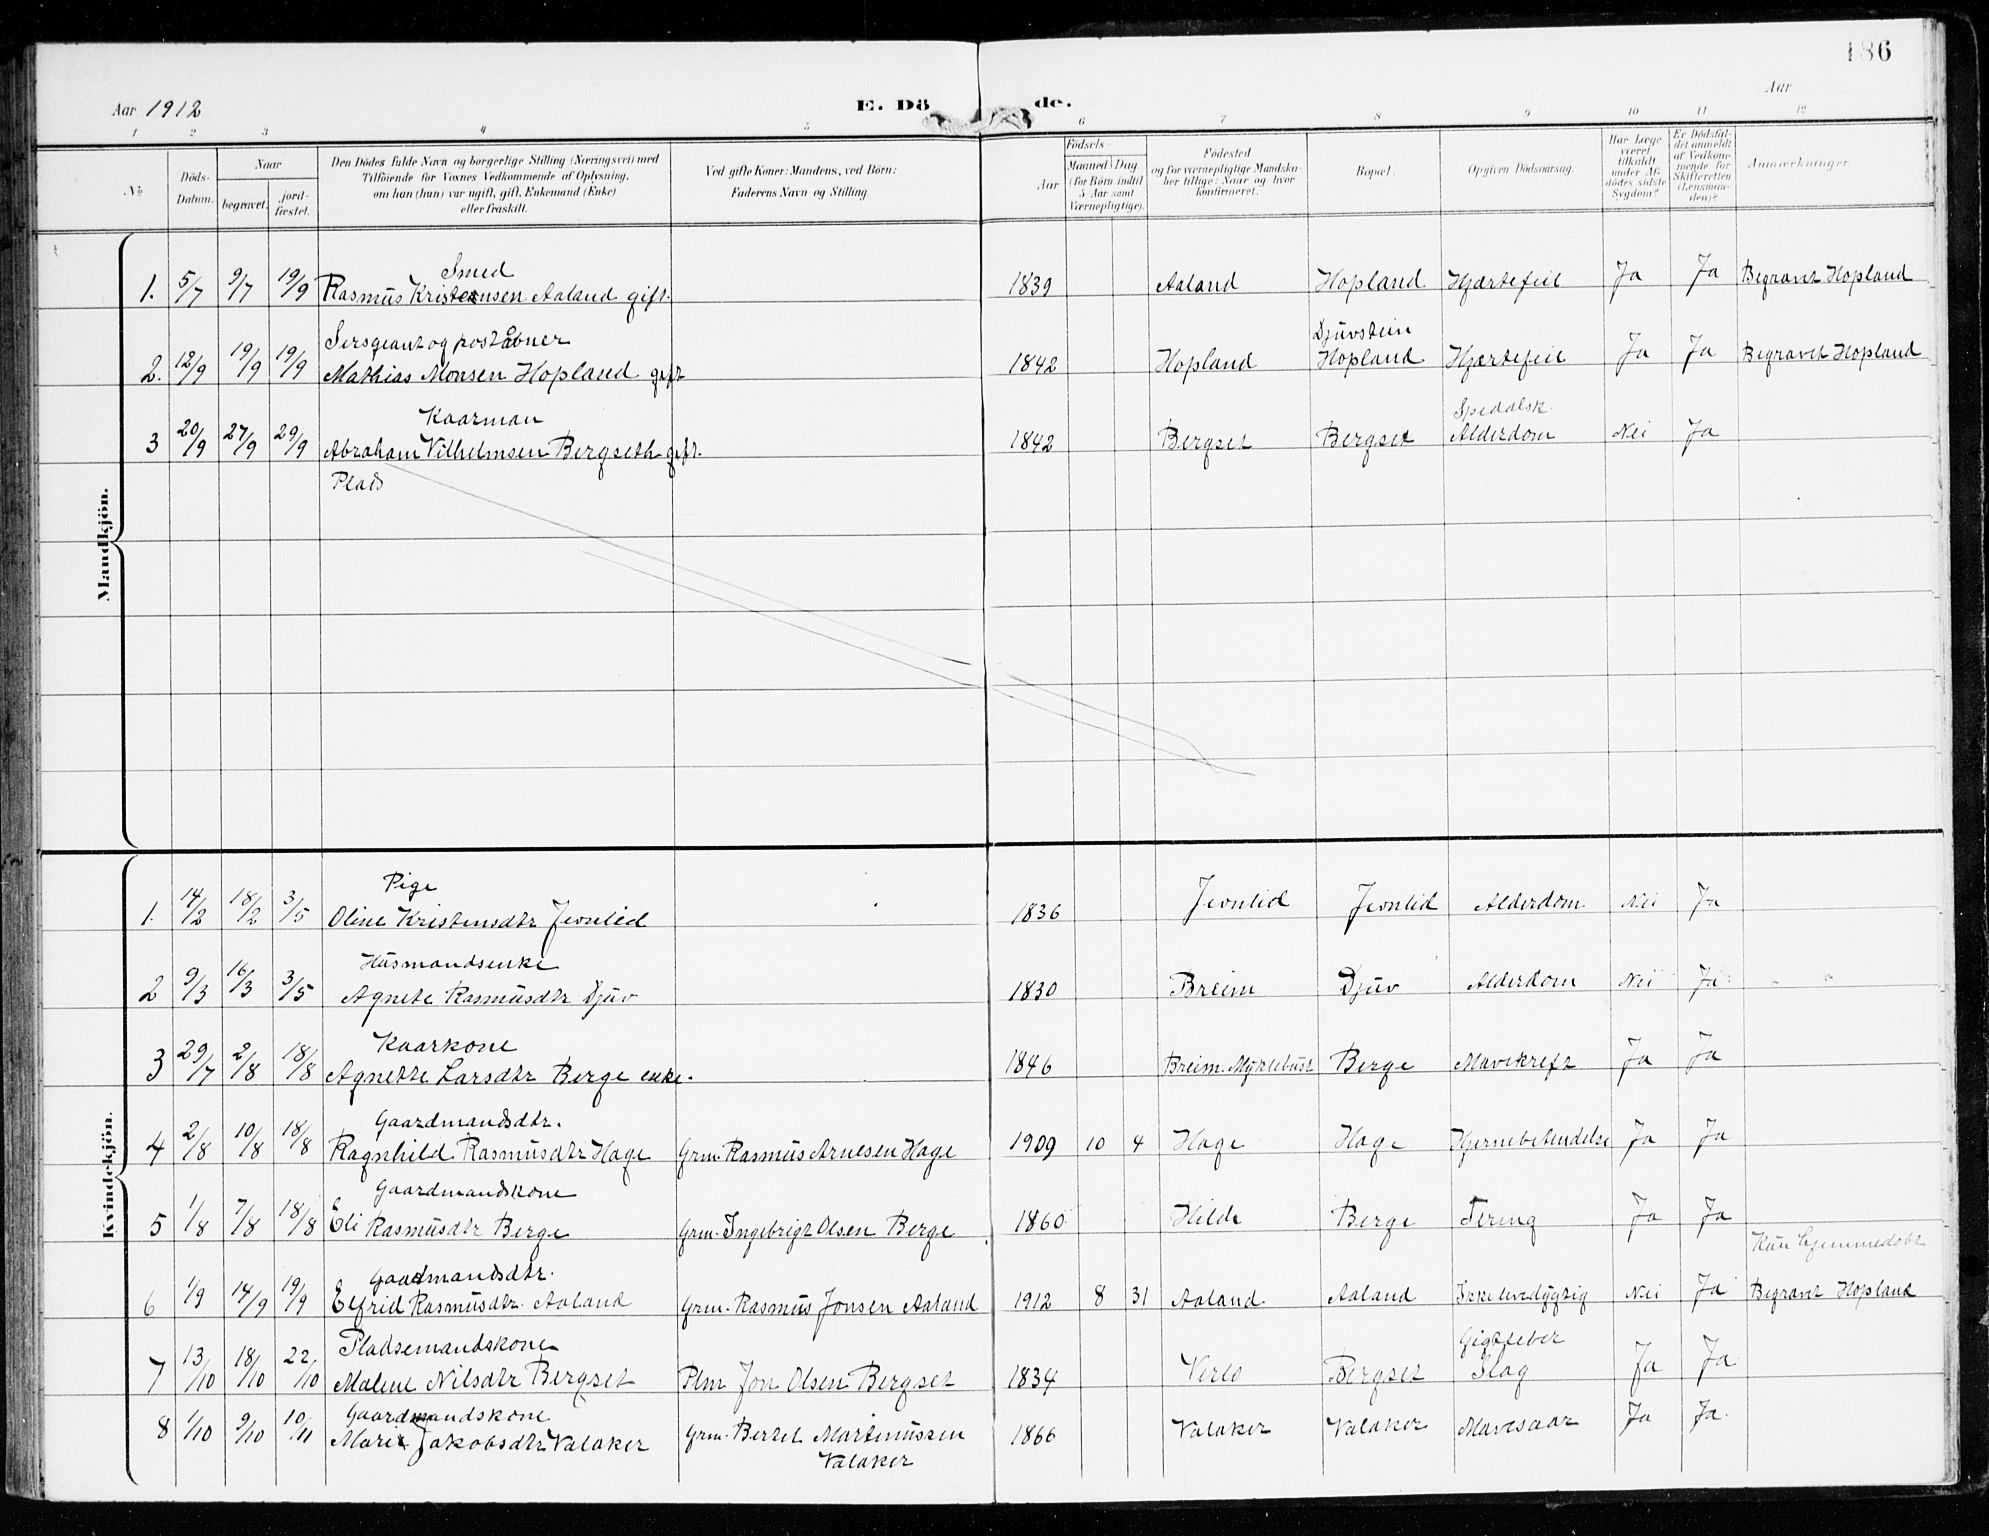 186
Aar 1912
E. Dö de.
Aar
1 2 3 4 5 6 7 8 9 10 11 12
№
Döds-Datum.
Naar
begravet.
jord-fæstet.
Den Dödes fulde Navn og borgerlige Stilling (Næringsvei) med
Tilföiende for Voxnes Vedkommende af Oplysning,
om han (hun) var ugift, gift, Enkemand (Enke)
eller fraskilt.
Ved gifte Koner: Mandens, ved Börn:
Faderens Navn og Stilling
Födsels-
Aar
Maaned Dag
(for Börn indtil
5 Aar samt
Værnepligtige).
Födested
og for værnepligtige Mandska-
ber tillige: Naar og hvor
konfirmeret.
Bopæl.
Opgiven Dödsaarsag.
Har Læge
været
tilkaldt
under Af-
dödes sidste
Sygdom?
Er Dödsfal-
det anmeldt
af Vedkom-
mende for
Skifteretten
(Lensman-
den)?
Anmærkninger.
Mandkjön.
Smed
1. 5/7 9/7 19/9 Rasmus Kristensen Aaland gift. 1839 Aaland Hopland Hjærtefeil Ja Ja Begravet Hopland
Sersgeant og postaabner Djuvstein
2. 12/9 19/9 19/9 Mathias Monsen Hopland gift 1842 Hopland Hopland Hjærtefeil Ja Ja Begravet Hopland
Kaarman Spedalsk.
3 20/9 27/9 29/9 Abraham Vilhelmsen Bergseth gift. 1842 Bergset Bergset Alderdom Nei Ja
Plads
Kvindekjön.
Pige
1. 14/2 18/2 3/5 Oline Kristensdtr 1836 Alderdom Nei Ja
Husmandsenke
2 9/3 16/3 3/5 Agnete Rasmusdtr Djuv 1830 Breim Djuv Alderdom Nei Ja
Kaarkone
3 29/7 2/8 18/8 Agnette Larsdtr Berge enke. 1846 Breim. Myklebust Berge Mavekreft Ja Ja
Gaardmandsdtr.
4 2/8 10/8 18/8 Ragnhild Rasmusdtr Hage Grm. Rasmus Arnesen Hage 1909 10 4 Hage Hage Hjernebetendelse Ja Ja
Gaardmandskone
5 1/8 7/8 18/8 Eli Rasmusdtr Berge Grm. Ingebrigt Olsen Berge 1860 Hilde Berge Tering Ja Ja
Gaardmandsdtr. Kun hjemmedøbt
6 1/9 14/9 19/9 Elfrid Rasmusdtr. Aaland Grm. Rasmus Jonsen Aaland 1912 8 31 Aaland Aaland Ikke levedygtig Nei Ja Begravet Hopland
Pladsemandskone Gigtfeber
7 13/10 18/10 22/10 Malene Nilsdtr Bergset Plm Jon Olsen Bergset 1834 Bergset Slag Ja Ja
Gaardmandskone
8 1/10 9/10 10/11 Mari Jakobsdtr Valaker Grm. Bertel Martinussen 1866 Valaker Valaker Mavesaar Ja Ja
Valaker